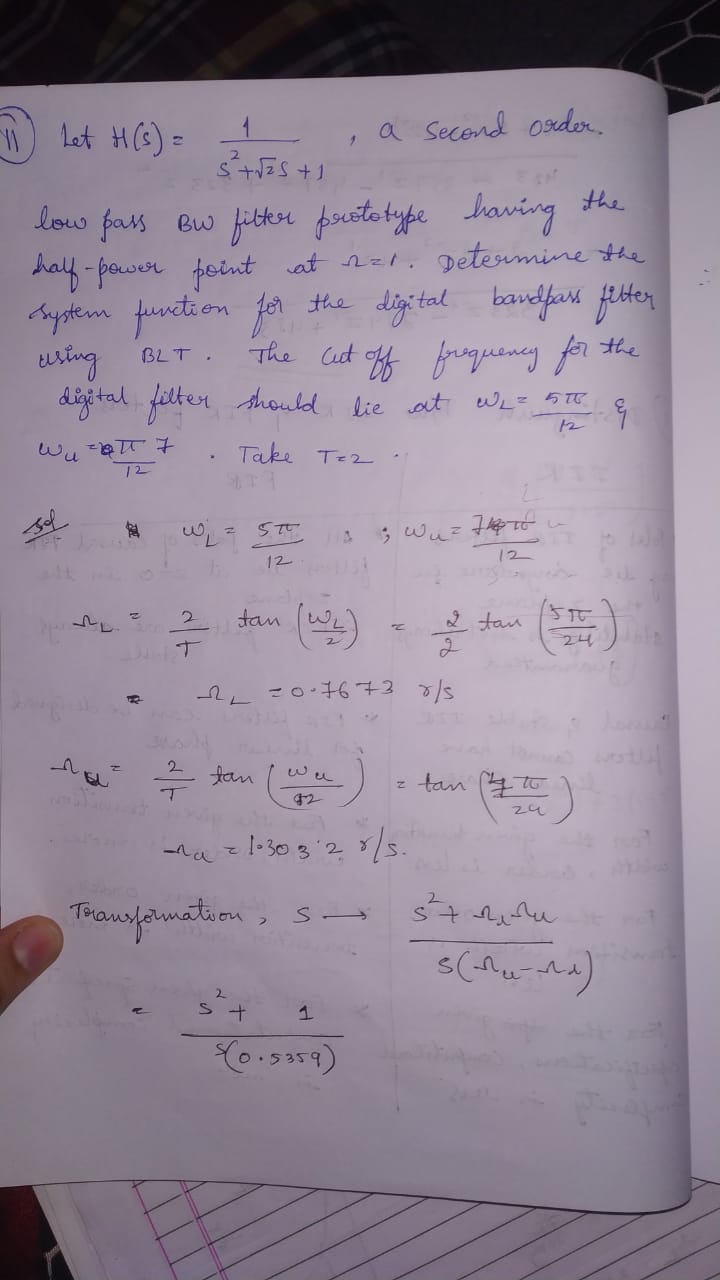 11) Let H(s) = 1 / (s² + √2 s + 1) , a second order.
low pass BW filter prototype having the
half-power point at Ω=1. Determine the
system function for the digital bandpass filter
using BLT. The cut off frequency for the
digital filter should lie at ω_L = 5π/12 &
ω_u = 7π/12 . Take T=2 .
Sol ω_L = 5π/12 ; ω_u = 7π/12
Ω_L = 2/T tan (ω_L/2) = 2/2 tan (5π/24)
= Ω_L = 0.7673 r/s
Ω_u = 2/T tan (ω_u/2) = tan (7π/24)
Ω_u = 1.3032 r/s.
Transformation, s → (s² + Ω_l Ω_u) / (s(Ω_u - Ω_l))
= (s² + 1) / (s(0.5359))